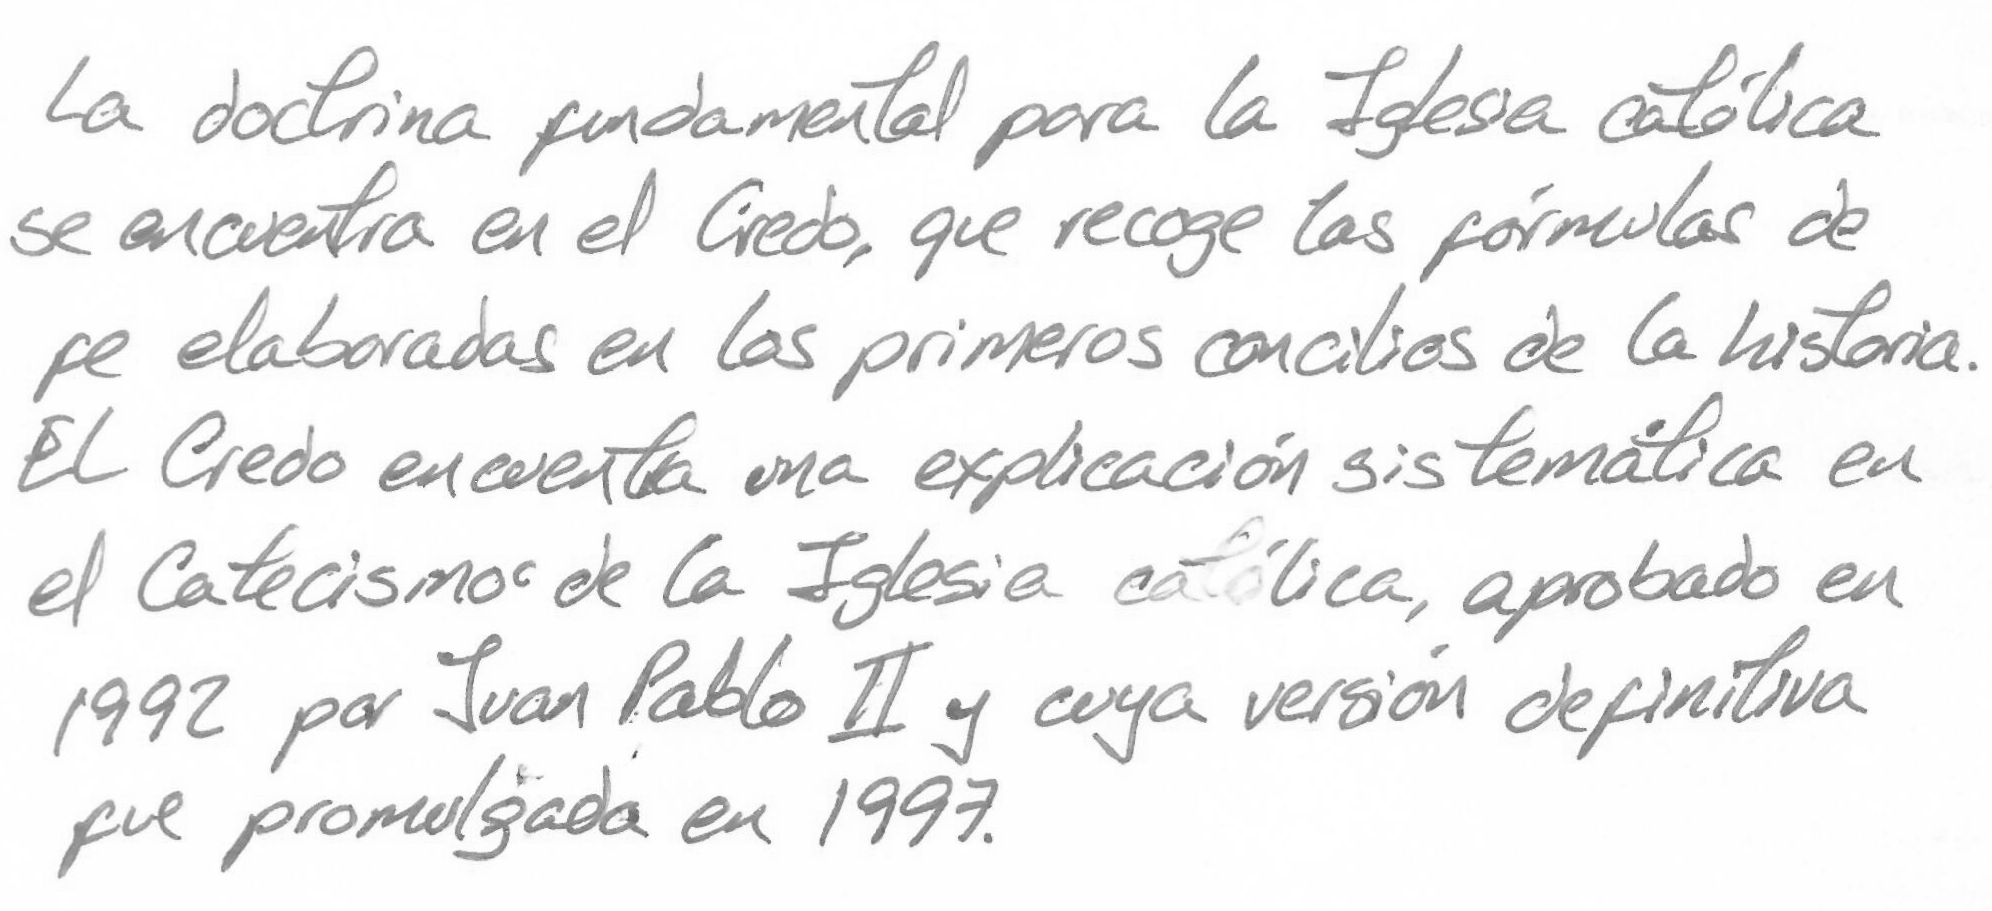 La doctrina fundamental para la Iglesia católica
se encuentra en el Credo, que recoge las fórmulas de
fe elaboradas en los primeros concilios de la historia.
El Credo encuentra una explicación sistemática en
el Catecismo de la Iglesia católica, aprobado en
1992 por Juan Pablo II y cuya versión definitiva
fue promulgada en 1997.